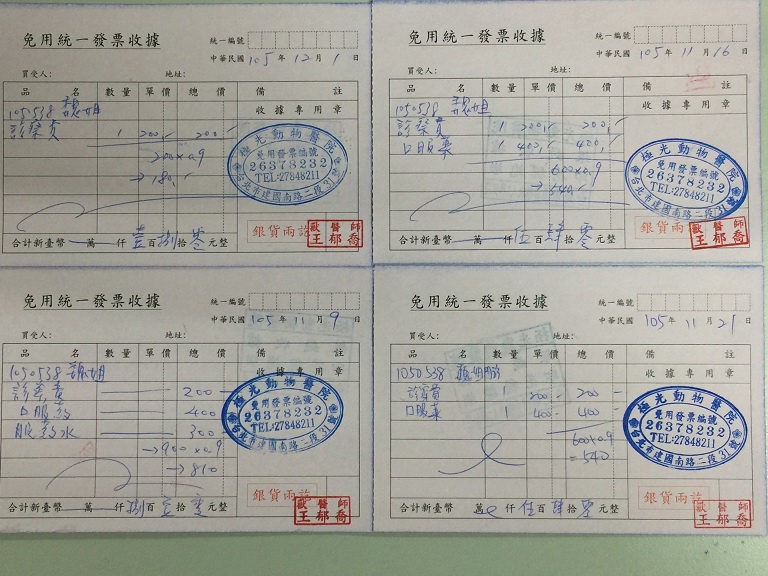 免用統一發票收據
統一編號
中華民國 105 年 12 月 1 日
買受人： 地址：
品名 數量 單價 總價 備註
收據專用章
1050538 魏姐
診察費 1 200,- 200,-
200x0.9
→180,-
極光動物醫院
免用發票編號
26378232
TEL:27848211
台北市建國南路二段31號
合計新臺幣 萬 仟 壹 百 捌 拾 零 元整
銀貨兩訖
獸醫師
王郁喬
免用統一發票收據
統一編號
中華民國 105 年 11 月 16 日
買受人： 地址：
品名 數量 單價 總價 備註
收據專用章
1050538 魏姐
診察費 1 200,- 200,-
口服藥 1 400,- 400,-
600x0.9
→540,-
極光動物醫院
免用發票編號
26378232
TEL:27848211
台北市建國南路二段31號
合計新臺幣 萬 仟 伍 百 肆 拾 零 元整
銀貨兩訖
獸醫師
王郁喬
免用統一發票收據
統一編號
中華民國 105 年 11 月 9 日
買受人： 地址：
品名 數量 單價 總價 備註
收據專用章
1050538 魏姐
診察費 200-
口服藥 400-
眼藥水 300-
→900x0.9
→810
極光動物醫院
免用發票編號
26378232
TEL:27848211
台北市建國南路二段31號
合計新臺幣 萬 仟 捌 百 壹 拾 零 元整
銀貨兩訖
獸醫師
王郁喬
免用統一發票收據
統一編號
中華民國 105 年 11 月 21 日
買受人： 地址：
品名 數量 單價 總價 備註
收據專用章
1050538
診察費 1 200- 200-
口服藥 1 400- 400-
600x0.9
=540
極光動物醫院
免用發票編號
26378232
TEL:27848211
台北市建國南路二段31號
合計新臺幣 萬 仟 伍 百 肆 拾 零 元整
銀貨兩訖
獸醫師
王郁喬